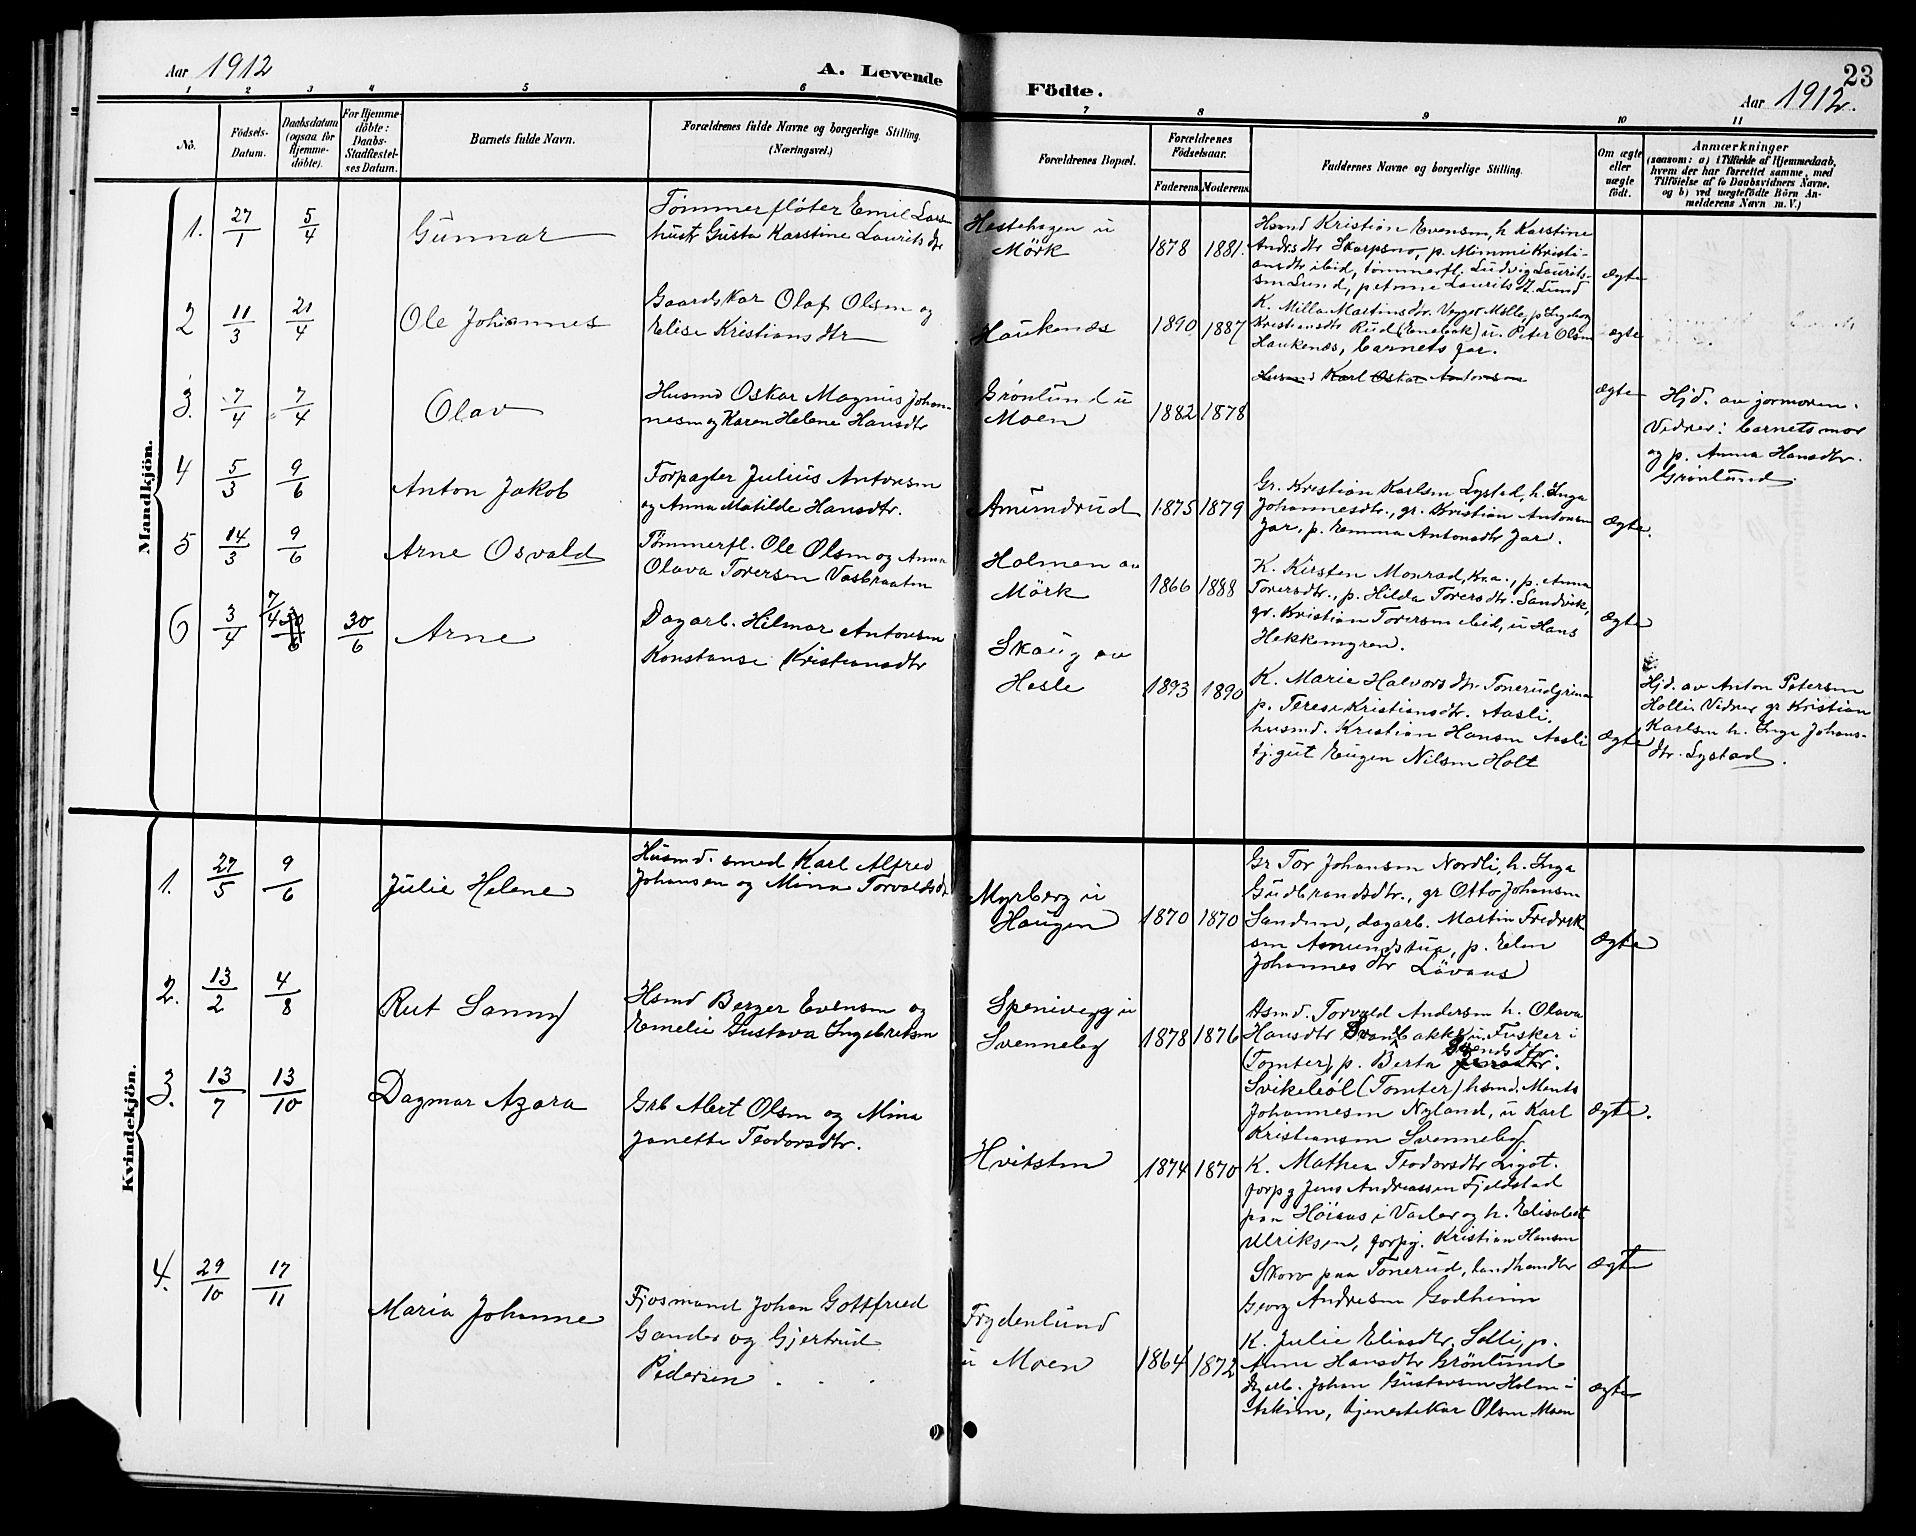 Aar 1912
A. Levende
Födte.
23
Aar 1912.
1 2 3 4 5 6 7 8 9 10 11
No.
Födsels-
Datum.
Daabsdatum
(ogsaa for
Hjemme-
döbte).
For Hjemme-
döbte:
Daabs-
Stadfæstel-
ses Datum.
Barnets fulde Navn.
Forældrenes fulde Navne og borgerlige Stilling.
(Næringsvei.)
Forældrenes Bopæl.
Forældrenes
Födselsaar.
Faderens. Moderens.
Faddernes Navne og borgerlige Stilling.
Om ægte
eller
uægte
födt.
Anmærkninger
(saasom: a) i Tilfælde af Hjemmedaab,
hvem der har forrettet samme, med
Tilföielse af to Daabsvidners Navne,
og b) ved uægtefödte Börn An-
melderens Navn m. V.)
Mandkjön.
1. 27/1 5/4 Gunnar
Tömmerfløter Emil Larsen
hustr Gusta Karstine Laurits dtr
Hestehagen u
Mörk
1878 1881.
Hsmd Kristian Evensen, h. Karstine
Andrsdtr Skarpsno, p. Mimmi Kristi-
ansdtr ibid, tömmerfl. Ludvig Laurits-
sen Lund, petrine Laurits dt. Lund
ægte
2 11/3 21/4 Ole Johannes
Gaardskar Olaf Olsen og
Elise Kristians dtr
Haukenæs
1890 1887
K. Milla Martinsdtr. Vegger Mølle, p Ingeborg
Kristiansdtr Rud (Enebak) u. Peter Olsen
Haukenæs, barnets far.
ægte
3. 7/4 7/4 Olav
Husmd Oskar Magnus Johan-
nesen og Karen Helene Hansdtr
Grønlund u
Moen
1882 1878
Husmd Karl Oskar Antonsen
ægte
Hjd. av jormoren.
Vidner: barnets mor
og p. Anna Hansdtr.
Grønlund.
4 5/3 9/6 Anton Jakob
Forpagter Julius Antonsen
og Anna Matilde Hansdtr.
Amundrud
1875 1879
Gr. Kristian Karlsen Lystad, h. Inga
Johannesdtr., gr. Kristian Antonsen
Jar, p. Emma Antonsdtr Jar.
ægte.
5 14/3 9/6 Arne Osvald
Tömmerfl. Ole Olsen og Anna
Olava Toversen Vasbraaten
Holmen av
Mörk
1866 1888
K. Kirsten Monrad, Kra., p. Anna
Toversdtr., p. Hilda Toversdtr. Sandvik,
gr. Kristian Toversen ibid, u Hans
Hekkemgren.
ægte
6 3/4 7/4 30/6 30/6 Arne
Dagarb. Hilmar Antonsen
Konstanse Kristiansdtr
Skaug av
Hesle
1893 1890
K. Marie Halvors dtr Tonerudgrina
p. Terese Kristiansdtr. Aasli,
husmd. Kristian Hansen Aasli
tj. gut Eugen Nilsen Holt
ægte
Hjd. av Anton Petersen
Holli. Vidner gr Kristian
Karlsen h. Inga Johans-
dtr. Lystad.
Kvindekjön.
1. 27/5 9/6 Julie Helene
Husmd. smed Karl Alfred
Johansen og Mina Torvaldsdt
Myrberg u
Haugen
1870 1870
Gr Tor Johansen Nordli, h. Inga
Gudbrandsdtr., gr Otto Johansen
Sanden, dagarb. Martin Fredrik
sen Amundstua, p. Elen
Johannes dtr Lövaas
ægte
2. 13/2 4/8 Rut Sanny
Hsmd Berger Evensen og
Emelie Gustava Ingebretsen
Spenivegg u
Svenneby
1878 1876
Hsmd. Torvald Andersen h. Olava
Hansdtr Svanbakke u. Fusker i
(Tomter), p. Berta Svendsdtr.
Svikeböl (Tomter) hsmd. Ments
Johannesen Nyland, u Karl
Kristiansen Svenneby
ægte.
3. 13/7 13/10 Dagmar Azora
Grb Albert Olsen og Mina
Janette Teodorsdtr.
Hvitsten
1874 1870
K. Mathea Teodorsdtr Ligot.
forpg Jens Andreassen Fjeldstad
paa Höiaas i Vaaler og h. Elisabeth
Ulriksen, forpg. Kristian Hansen
Skov paa Tonerud, landhandler
Georg Andresen Godheim
ægte
4. 29/10 17/11 Maria Johanne
Fjosmand Johan Gottfried
Gander og Gjertrud
Pedersen
Frydenlund
u Moen
1864 1872
K. Julie Eliasdtr. Solli, p.
Anna Hansdtr Grönlund
dgarb. Johan Gustavsen Holm i
Askim, tjenestekar Olsen Moen
ægte